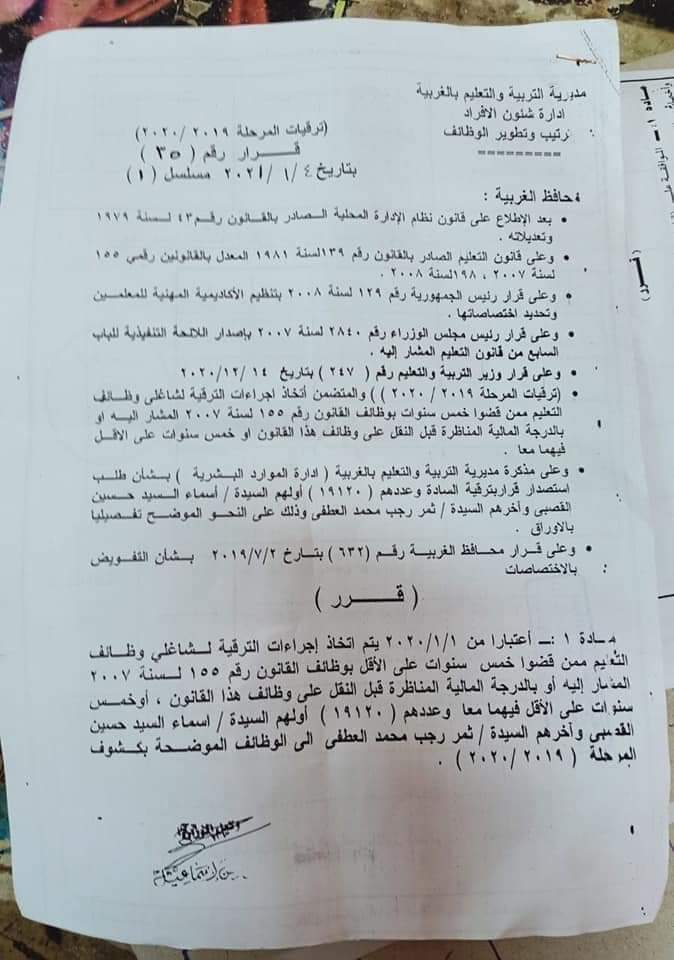 مديرية التربية والتعليم بالغربية
ادارة شئون الافراد
ترتيب وتطوير الوظائف
=========
(ترقيات المرحلة ٢٠١٩ /٢٠٢٠)
قـــرار رقم ( ٣٥ )
بتاريخ ٤ /١ /٢٠٢١ مسلسل (١)
محافظ الغربية :
• بعد الإطلاع على قانون نظام الإدارة المحلية الـصادر بالقانون رقم ٤٣ لـسنة ١٩٧٩
وتعديلاته .
• وعلى قانون التعليم الصادر بالقانون رقم ١٣٩لسنة ١٩٨١ المعدل بالقانونين رقمي ١٥٥
لسنة ٢٠٠٧ ، ١٩٨لسنة ٢٠٠٨ .
• وعلى قرار رئيس الجمهورية رقم ١٢٩ لسنة ٢٠٠٨ بتنظيم الأكاديمية المهنية للمعلمـين
وتحديد اختصاصاتها .
• وعلى قرار رئيس مجلس الوزراء رقم ٢٨٤٠ لسنة ٢٠٠٧ بإصدار اللائحة التنفيذية للباب
السابع من قانون التعليم المشار إليه .
• وعلى قرار وزير التربية والتعليم رقم ( ٢٤٧ ) بتاريخ ١٤ /١٢/ ٢٠٢٠
• (ترقيات المرحلة ٢٠١٩ / ٢٠٢٠ ) ) والمتضمن أتخاذ اجراءات الترقية لشاغلى وظـائف
التعليم ممن قضوا خمس سنوات بوظائف القانون رقم ١٥٥ لسنة ٢٠٠٧ المشار اليه او
بالدرجة المالية المناظرة قبل النقل على وظائف هذا القانون او خمس سنوات على الاقـل
فيهما معا .
• وعلى مذكرة مديرية التربية والتعليم بالغربية ( ادارة الموارد البـشرية ) بـشأن طلـب
استصدار قراربترقية السادة وعددهم ( ١٩١٢٠ ) أولهم السيدة / أسماء الـسيد حـسين
القصبى وأخرهم السيدة / ثمر رجب محمد العطفى وذلك على النحـو الموضـح تفـصيليا
بالاوراق .
• وعلى قـرار محـافظ الغربيـة رقـم (٦٣٢ ) بتـارخ ٢٠١٩/٧/٢ بـشأن التفـويض
بالاختصاصات
( قــــرر )
مـادة ١ :ــ أعتبارا من ٢٠٢٠/١/١ يتم اتخاذ إجراءات الترقية لـشاغلي وظـائف
التعليم ممن قضوا خمس سنوات على الأقل بوظائف القانون رقم ١٥٥ لـسنة ٢٠٠٧
المشار إليه أو بالدرجة المالية المناظرة قبل النقل على وظائف هذا القانون ، أوخمـس
سنوات على الأقل فيهما معا وعددهم ( ١٩١٢٠ ) أولهم السيدة / اسماء السيد حسين
القصبى وآخرهم السيدة / ثمر رجب محمد العطفى الى الوظائف الموضـحة بكـشوف
المرحلة ( ٢٠١٩ / ٢٠٢٠ ) .
مادة ١ :ــ
( قـــرر )